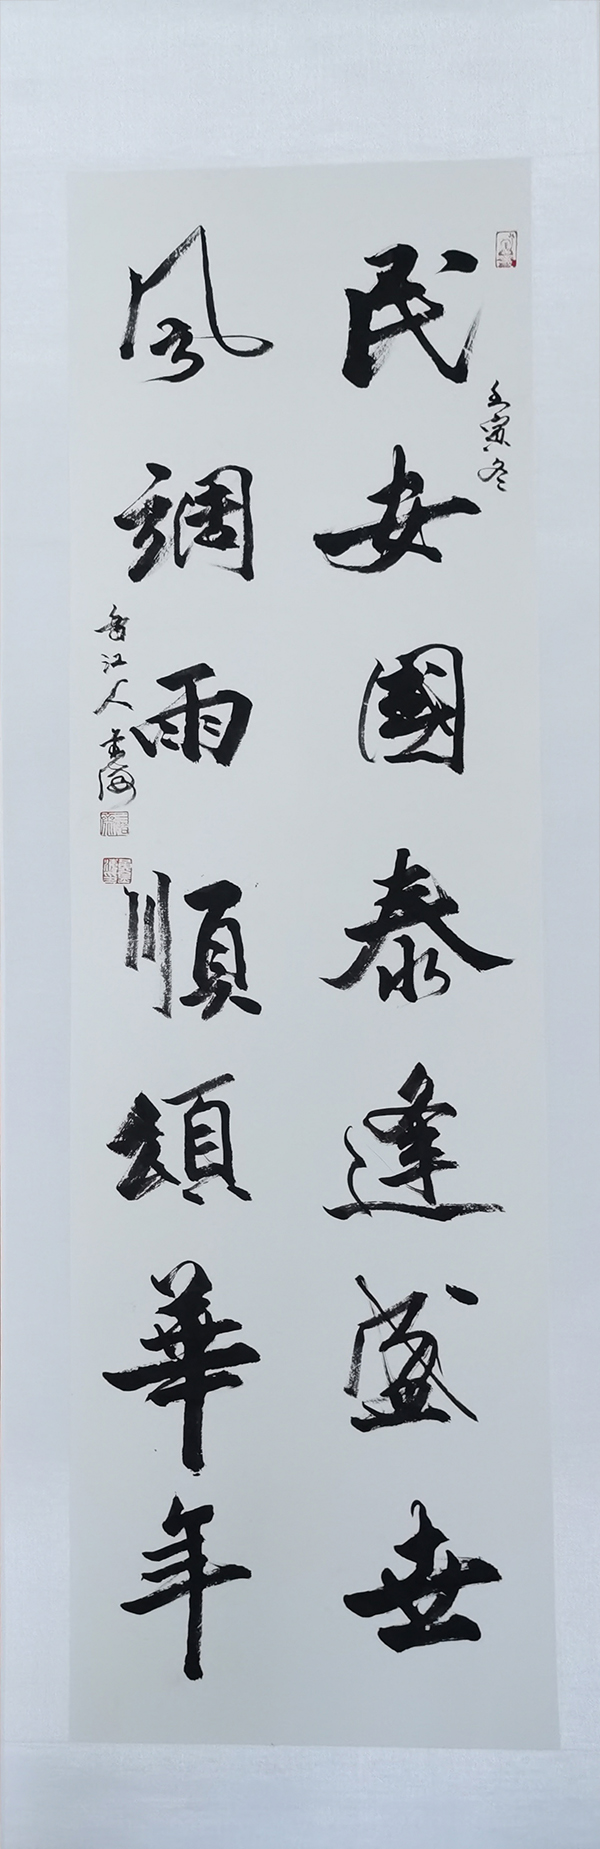 民安國泰逢盛世
壬寅冬
風調雨順頌華年
香江人